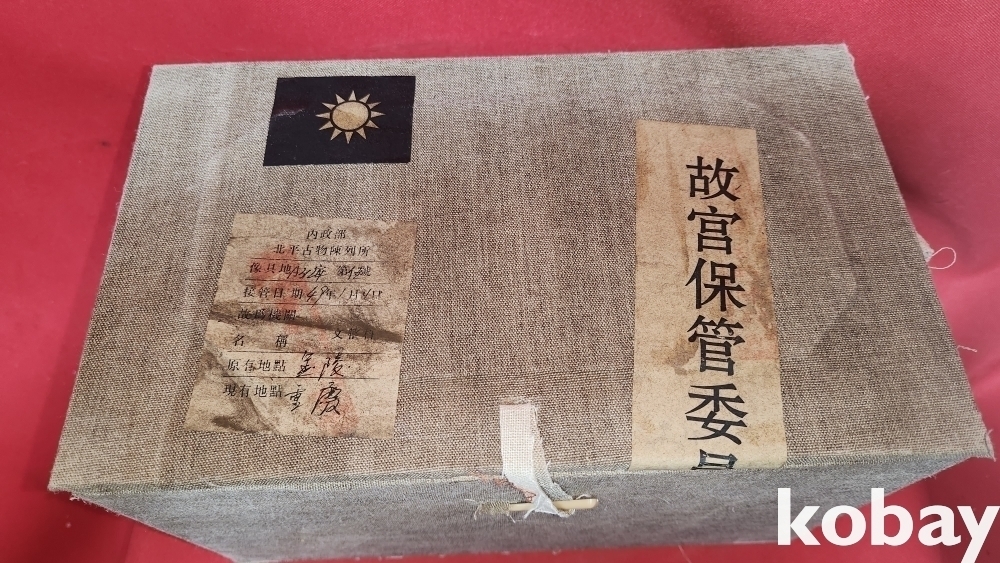 內政部
北平古物陳列所
傢具地 第 號
接管日期 年 月 日
故為機關
名 稱
原存地點 金陵
現存地點 重慶
故宮保管委員
kobay